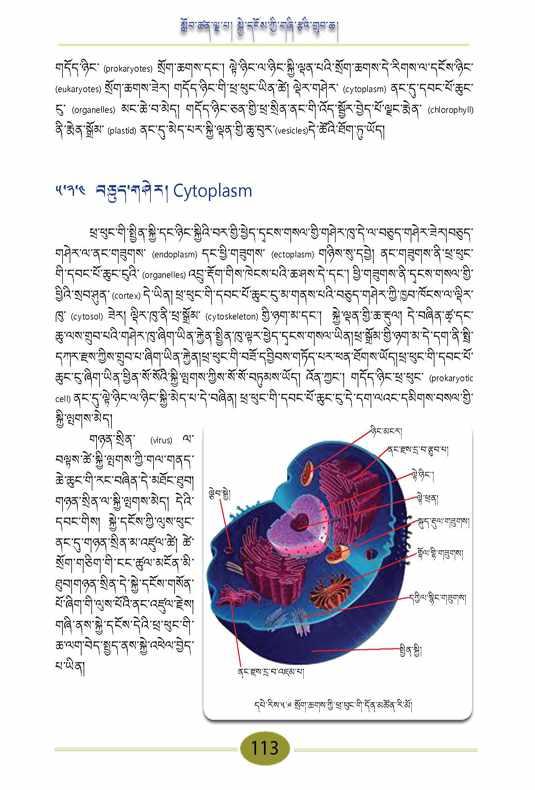 སློབ་ཚན་ལྔ་པ། སྐྱེ་དངོས་ཀྱི་གཞི་རྩའི་གྲུབ་ཆ།
གདོད་ཉིང་ (prokaryotes) སྲོག་ཆགས་དང་། ལྟེ་ཉིང་ལ་ཉིང་སྐྱི་ལྡན་པའི་སྲོག་ཆགས་དེ་རིགས་ལ་དངོས་ཉིང་
(eukaryotes) སྲོག་ཆགས་ཟེར། གདོད་ཉིང་གི་ཕྲ་ཕུང་ཡིན་ཚེ། ལྡེར་གཤེར་ (cytoplasm) ནང་དུ་དབང་པོ་ཆུང་
ངུ་ (organelles) མང་ཆེ་བ་མེད། གདོད་ཉིང་ཅན་གྱི་ཕྲ་སྲིན་ནང་གི་འོད་སྦྱོར་བྱེད་པོ་ལྗང་རྨེན་ (chlorophyll)
ནི་རྨེན་སྒྲོམ་ (plastid) ནང་དུ་མེད་པར་སྐྱི་ལྡན་གྱི་ཆུ་བུར་(vesicles)དེ་ཚོའི་ཐོག་ཏུ་ཡོད།
༥་༢་༤ བཅུད་གཤེར། Cytoplasm
ཕྲ་ཕུང་གི་སྤྲིན་སྐྱི་དང་ཉིང་སྐྱིའི་བར་གྱི་ཕྱེད་དྭངས་གསལ་གྱི་གཤེར་ཁུ་དེ་ལ་བཅུད་གཤེར་ཟེར།བཅུད་
གཤེར་ལ་ནང་གཟུགས་ (endoplasm) དང་ཕྱི་གཟུགས་ (ectoplasm) གཉིས་སུ་དབྱེ། ནང་གཟུགས་ནི་ཕྲ་ཕུང་
གི་དབང་པོ་ཆུང་ངུའི་ (organelles) འབྲུ་རྡོག་གིས་ཁེངས་པའི་ཆ་ཤས་དེ་དང་། ཕྱི་གཟུགས་ནི་དྭངས་གསལ་གྱི་
ཕྱིའི་སྲབ་ཤུན་ (cortex) དེ་ཡིན། ཕྲ་ཕུང་གི་དབང་པོ་ཆུང་ངུ་མ་གནས་པའི་བཅུད་གཤེར་ཀྱི་ཁྱབ་ཁོངས་ལ་ལྡེར་
ཁུ་ (cytosol) ཟེར། ལྡེར་ཁུ་ནི་ཕྲ་སྒྲོམ་ (cytoskeleton) གྱི་ཉག་མ་དང་། སྐྱེ་ལྡན་གྱི་ཆ་རྡུལ། དེ་བཞིན་ཚྭ་དང་
ཆུ་ལས་གྲུབ་པའི་གཤེར་ཁུ་ཞིག་ཡིན་རྐྱེན་སྤྲིན་ཁུ་ལྟར་ཕྱེད་དྭངས་གསལ་ཡིན།ཕྲ་སྒྲོམ་གྱི་ཉག་མ་དེ་དག་ནི་སྤྲི་
དཀར་རྫས་ཀྱིས་གྲུབ་པ་ཞིག་ཡིན་རྐྱེན།ཕྲ་ཕུང་གི་བཟོ་དབྱིབས་གཏོད་པར་ཕན་ཐོགས་ཡོད།ཕྲ་ཕུང་གི་དབང་པོ་
ཆུང་ངུ་ཞིག་ཡིན་ཕྱིན་སོ་སོའི་སྐྱི་ལྤགས་ཀྱིས་སོ་སོ་བཏུམས་ཡོད། འོན་ཀྱང་། གདོད་ཉིང་ཕྲ་ཕུང་ (prokaryotic
cell) ནང་དུ་ལྟེ་ཉིང་ལ་ཉིང་སྐྱི་མེད་པ་དེ་བཞིན། ཕྲ་ཕུང་གི་དབང་པོ་ཆུང་ངུ་དེ་དག་ལའང་དམིགས་བསལ་གྱི་
སྐྱི་ལྤགས་མེད།
གཉན་སྲིན་ (virus) ལ་
བལྟས་ཚེ་སྐྱི་ལྤགས་ཀྱི་གལ་གནད་
ཆེ་ཆུང་གི་རང་བཞིན་དེ་མཐོང་ཐུབ།
གཉན་སྲིན་ལ་སྐྱི་ལྤགས་མེད། དེའི་
དབང་གིས། སྐྱེ་དངོས་ཀྱི་ལུས་ཕུང་
ནང་དུ་གཉན་སྲིན་མ་འཛུལ་ཚེ། ཚེ་
སྲོག་གཅིག་གི་ངང་ཚུལ་མངོན་མི་
ཐུབ།གཉན་སྲིན་དེ་སྐྱེ་དངོས་གསོན་
པོ་ཞིག་གི་ལུས་པོའི་ནང་འཛུལ་རྗེས།
གཞི་ནས་སྐྱེ་དངོས་དེའི་ཕྲ་ཕུང་གི་
ཆ་ལག་བེད་སྤྱད་ནས་སྐྱེ་འཕེལ་བྱེད་
པ་ཡིན།
ཉིང་མངར།
ནང་རྫས་དྲ་བ་རྩུབ་པ།
ལྟེ་ཉིང་།
ལྷེབ་སྐྱེ།
ལྟེ་ཕྲན།
སྐུད་རྡུལ་གཟུགས།
གོལ་སྒི་གཟུགས།
དཀྱིལ་སྙིང་གཟུགས།
སྤྲིན་སྐྱི།
ནང་རྫས་དྲ་བ་འཇམ་པ།
དཔེ་རིས་༥་༩ སྲོག་ཆགས་ཀྱི་ཕྲ་ཕུང་གི་དོན་མཚོན་རི་མོ།
113